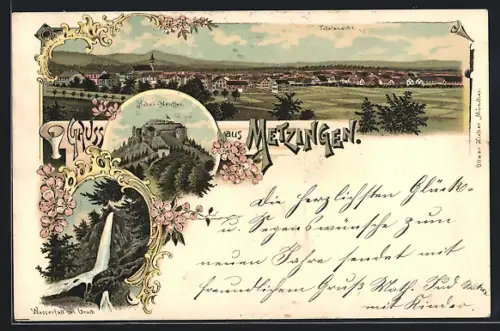 Totalansicht.
Hohen-Neuffen.
Gruss aus Metzingen.
Ottmar Zieher, München.
Die herzlichsten Glück-
u. Segenswünsche zum
neuen Jahre sendet mit
freundlichem Gruß Math.
mit Kinder.
Wasserfall bei Urach